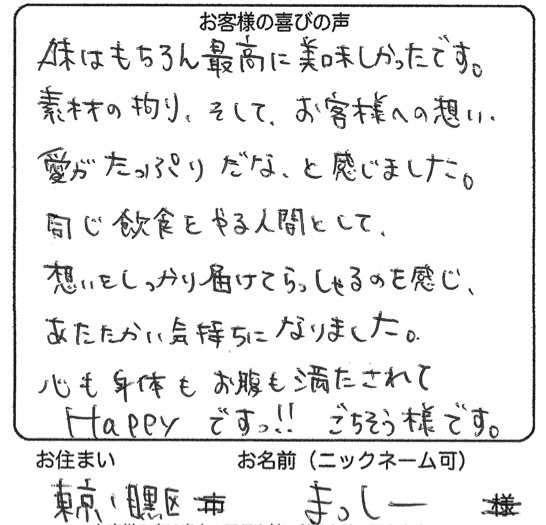 お客様の喜びの声
味はもちろん最高に美味しかったです。
素材の拘り、そして、お客様への想い、
愛がたっぷりだな、と感じました。
同じ飲食をやる人間として、
想いをしっかり届けてらっしゃるのを感じ、
あたたかい気持ちになりました。
心も身体もお腹も満たされて
Happyですっ!! ごちそう様です。
お住まい お名前（ニックネーム可）
東京 目黒区 まっしー 様